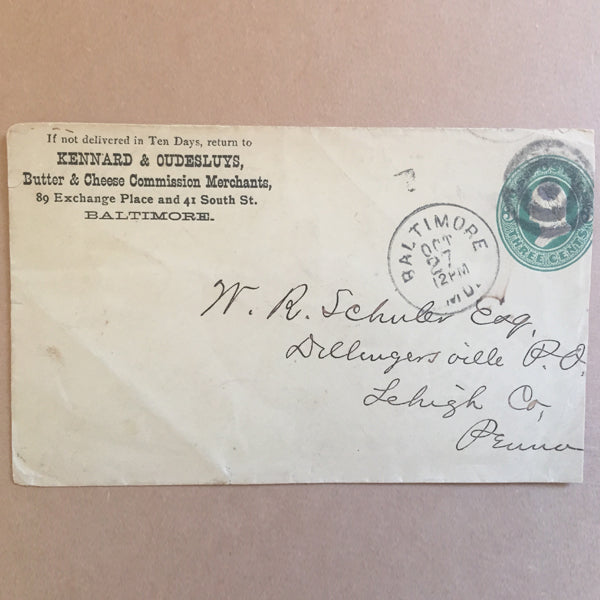 If not delivered in Ten Days, return to
KENNARD & OUDESLUYS,
Butter & Cheese Commission Merchants,
89 Exchange Place and 41 South St.
BALTIMORE.
BALTIMORE
OCT
27
12PM
MD.
THREE CENTS
W. R. Schuler Esq.
Dillingersville P.O.
Lehigh Co,
Penna